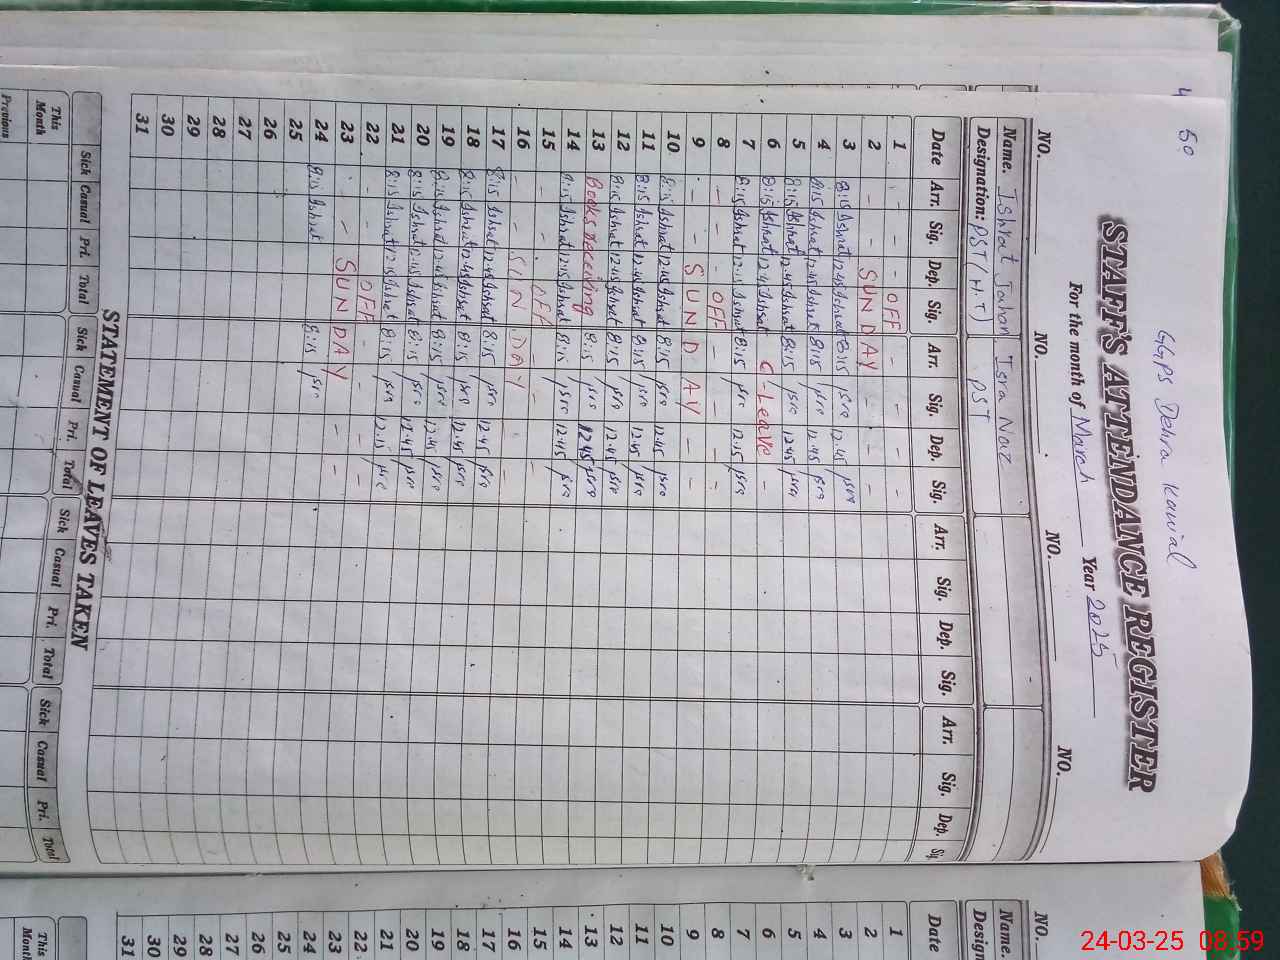 50
GGPS Dehra
STAFF'S ATTENDANCE REGISTER
For the month of March Year 2025
NO. NO. NO. NO.
Name. Ishrat Jahan Isra Naz
Designation: PST (H.T) PST
Date Arr. Sig. Dep. Sig. Arr. Sig. Dep. Sig. Arr. Sig. Dep. Sig. Arr. Sig. Dep.
1 - - - OFF - - - -
2 - - SUNDAY - - -
3 8:15 Ishrat 12:45 Ishrat 8:15 Isra 12:45 Isra
4 8:15 Ishrat 12:45 Ishrat 8:15 Isra 12:45 Isra
5 8:15 Ishrat 12:45 Ishrat 8:15 Isra 12:45 Isra
6 8:15 Ishrat 12:45 Ishrat C-Leave -
7 8:15 Ishrat 12:15 Ishrat 8:15 Isra 12:15 Isra
8 - - - OFF - - - -
9 - - SUNDAY - -
10 8:15 Ishrat 12:45 Ishrat 8:15 Isra 12:45 Isra
11 8:15 Ishrat 12:45 Ishrat 8:15 Isra 12:45 Isra
12 8:15 Ishrat 12:45 Ishrat 8:15 Isra 12:45 Isra
13 Books receiving 8:15 Isra 12:45 Isra
14 8:15 Ishrat 12:15 Ishrat 8:15 Isra 12:45 Isra
15 - - OFF - -
16 - - SUNDAY - -
17 8:15 Ishrat 12:45 Ishrat 8:15 Isra 12:45 Isra
18 8:15 Ishrat 12:45 Ishrat 8:15 Isra 12:45 Isra
19 8:15 Ishrat 12:45 Ishrat 8:15 Isra 12:45 Isra
20 8:15 Ishrat 12:45 Ishrat 8:15 Isra 12:45 Isra
21 8:15 Ishrat 12:15 Ishrat 8:15 Isra 12:15 Isra
22 - - OFF - - - -
23 - SUNDAY - -
24 8:15 Ishrat 8:15 Isra
25
26
27
28
29
30
31
STATEMENT OF LEAVES TAKEN
Sick Casual Pri. Total Sick Casual Pri. Total Sick Casual Pri. Total Sick Casual Pri. Total
This Month
Previous
NO.
Name.
Date
1
2
3
4
5
6
7
8
9
10
11
12
13
14
15
16
17
18
19
20
21
22
23
24
25
26
27
28
29
30
31
This
24-03-25 08:59